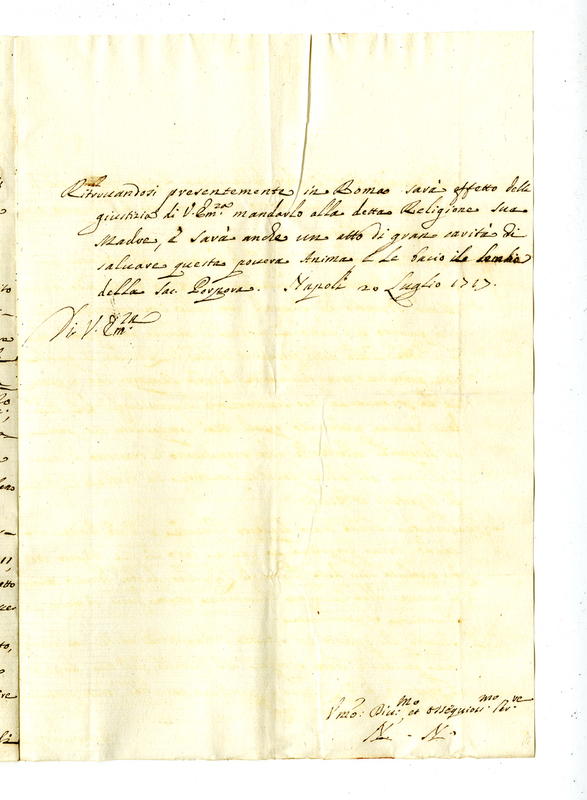 Ritrovandosi presentemente in Roma sarà effetto della
giustizia di V. Em.za mandarlo alla detta Religione sua
Madre, e sarà anche un atto di gran carità di
salvare questa povera Anima e le bacio il lembo
della Sac. Porpora. Napoli 20 Luglio 1717.
Di V. Em.za
Vmo: Divmo. et ossequiosmo. Serve
N. N.